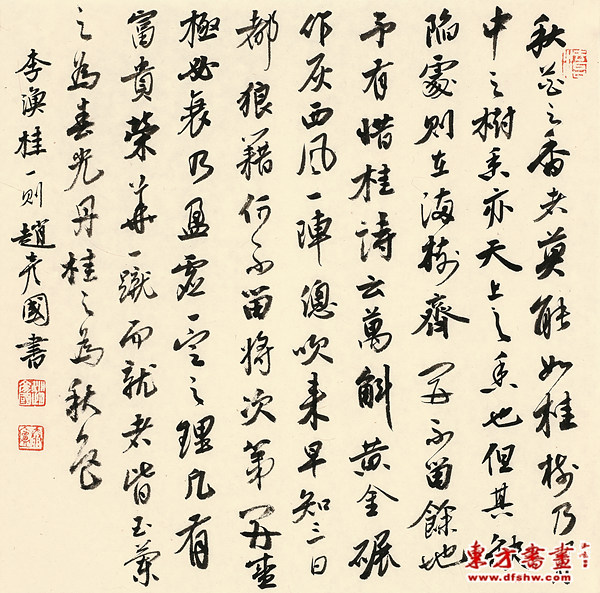 秋花之香者莫能如桂樹乃
中之樹香亦天上之香也但其缺
陷處則在滿樹齊開不留餘地
予有惜桂詩云萬斛黃金碾
作灰西風一陣總吹來早知三日
都狼籍何不留將次第開盛
極必衰乃盈虛一定之理凡有
富貴榮華一蹴而就者皆玉蘭
之為春光丹桂之為秋色
李漁桂一則趙彥國書
東方書畫
www.dfshw.com